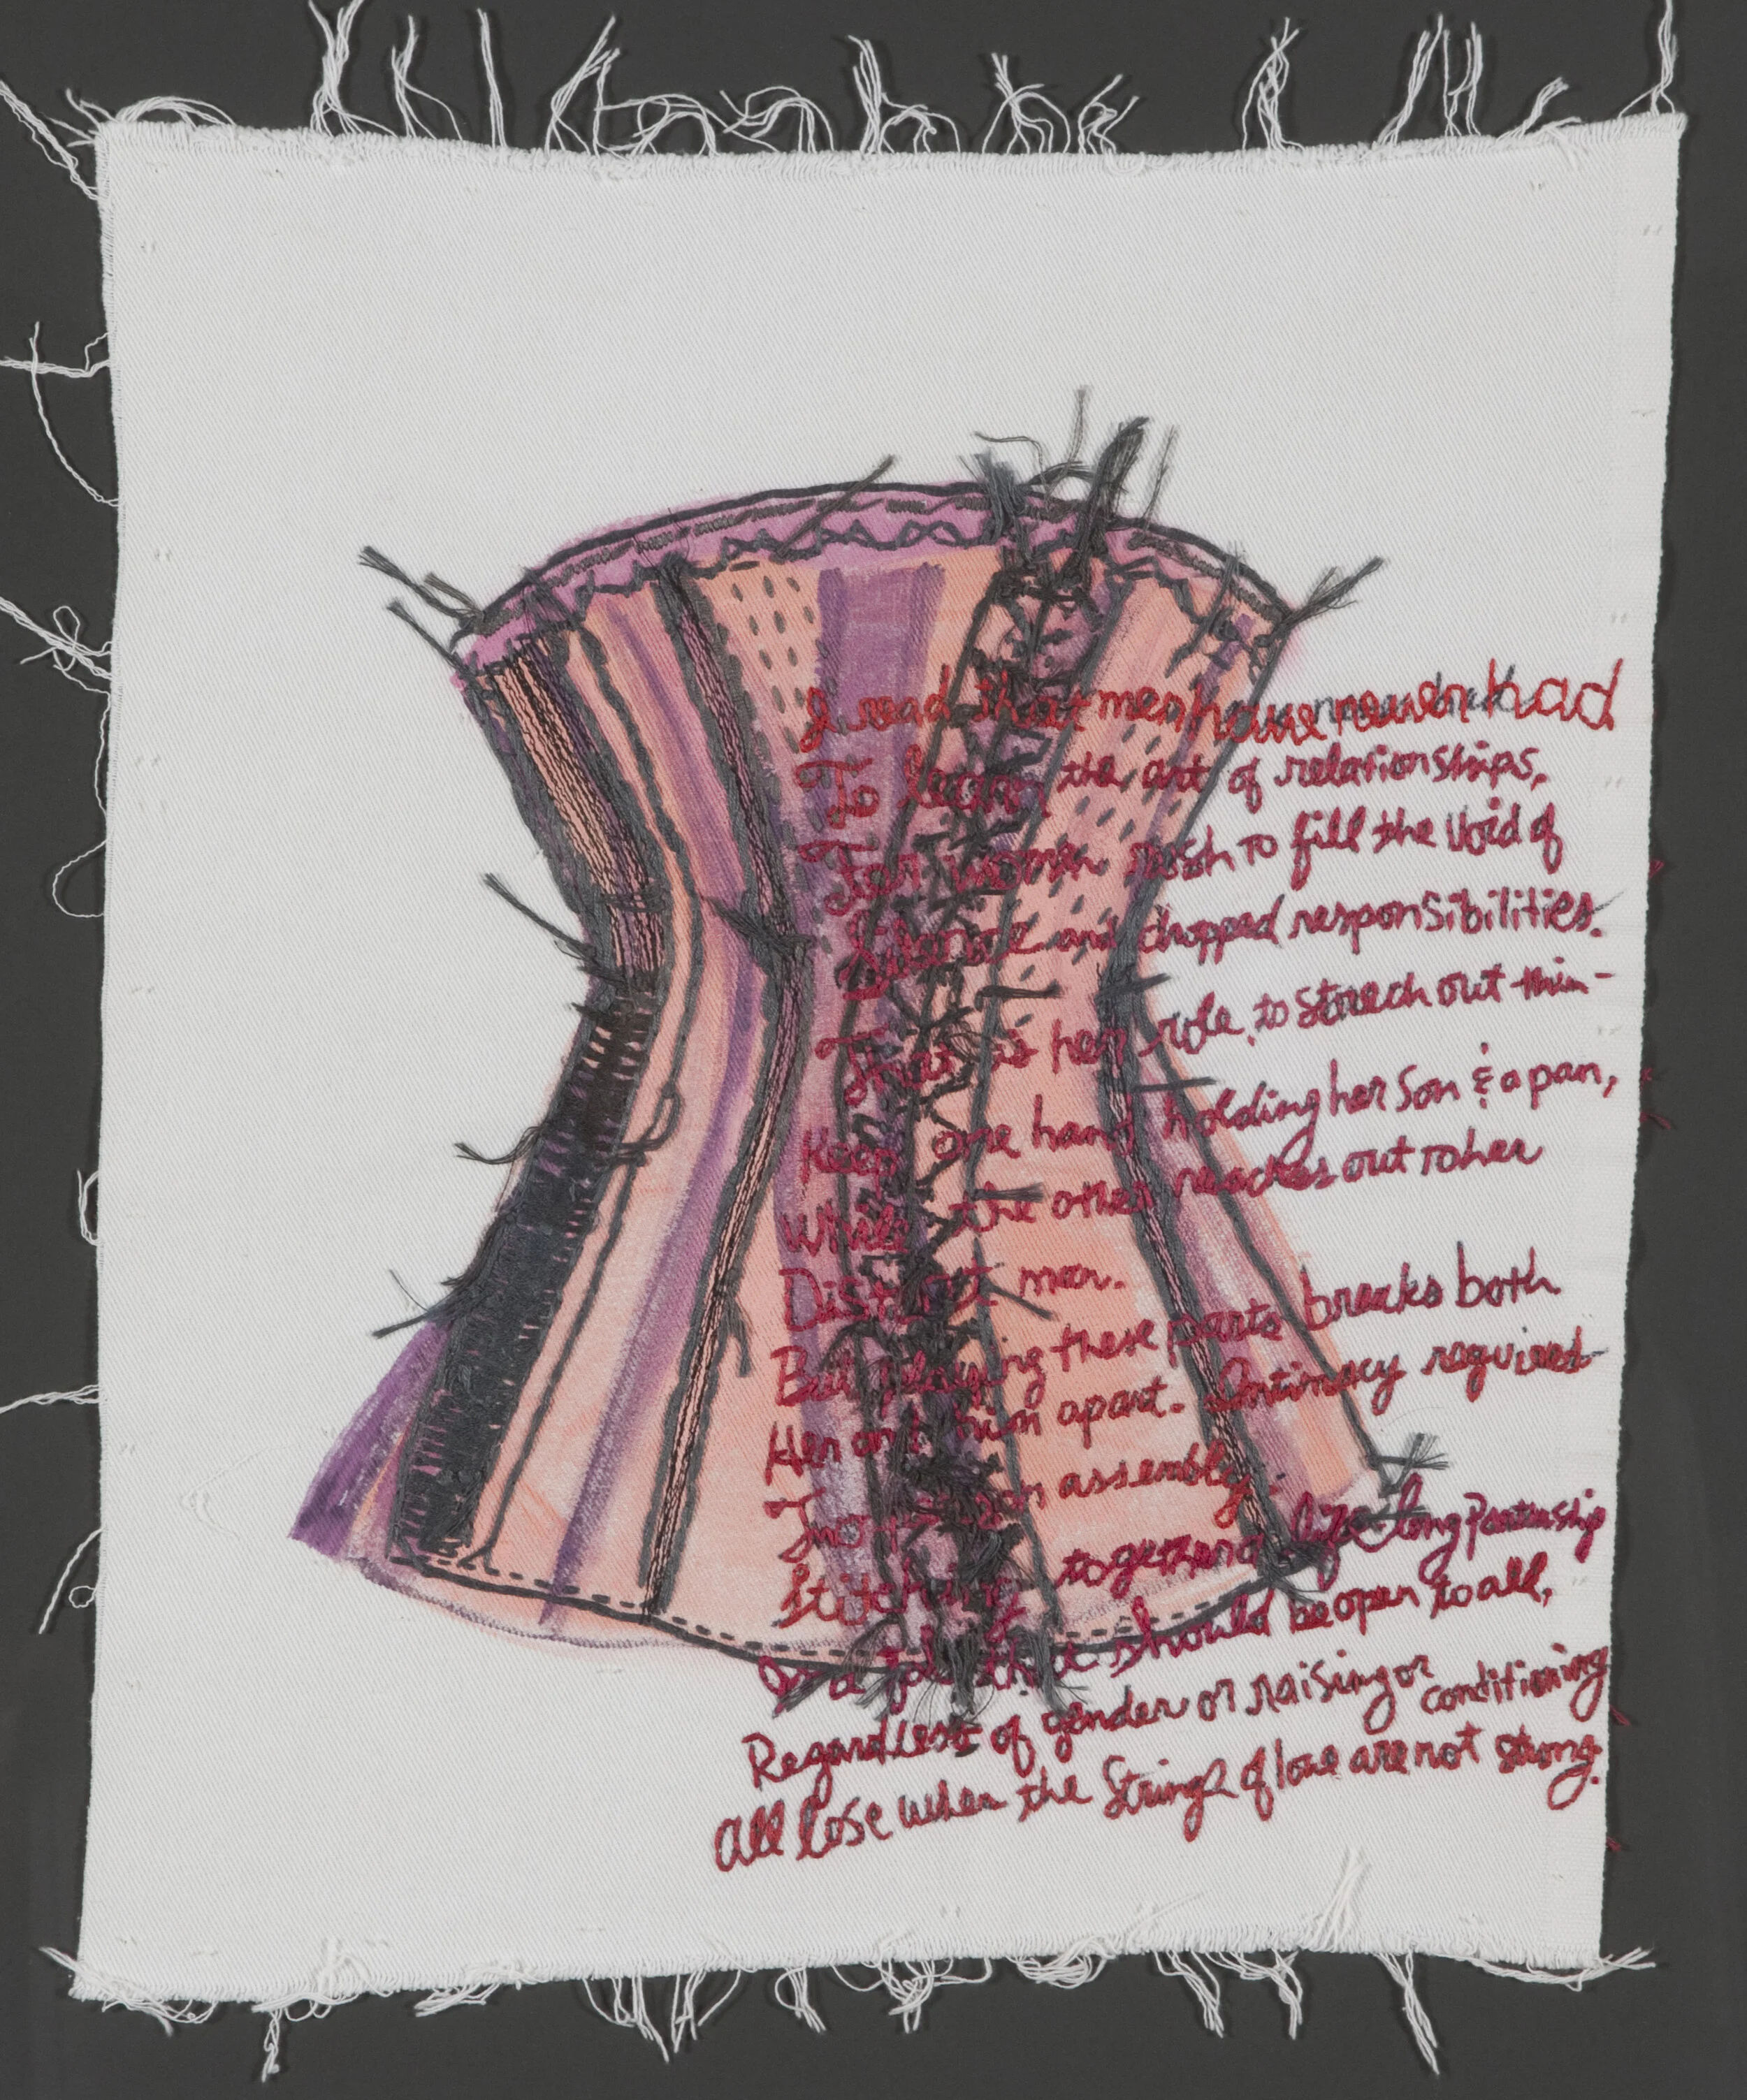 I read that men have never had
To learn the art of relationships,
For women rush to fill the void of
Silence and dropped responsibilities.
That is her role, to stretch out thin-
Keep one hand holding her son & a pan,
While the other reaches out to her
Distant man.
But playing these parts breaks both
Her and him apart. Intimacy requires
Two-person assembly:
Stitching together a life-long partnership
Is a job that should be open to all,
Regardless of gender or raising or conditioning
All lose when the strings of love are not strong.